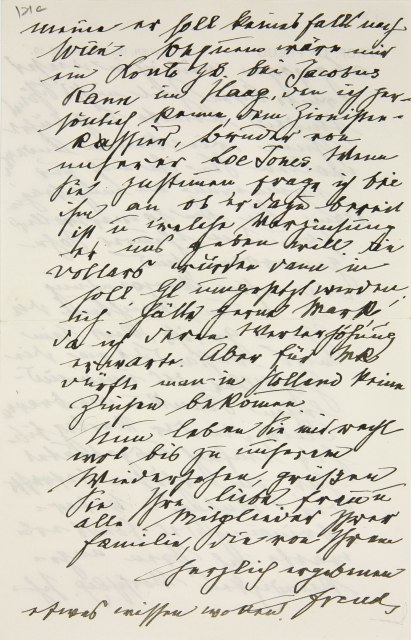 meine er soll keinesfalls nach
Wien. Bequem wäre mir
ein Conto zB. bei Jacobus
Kann im Haag, den ich per-
sönlich kenne, dem Zionisten-
kassier, Bruder von
unserer Loe Jones. Wenn
Sie zustimmen frage ich bei
ihm an ob er dazu bereit
ist u welche Verzinsung
er uns geben will. Die
Dollars würden dann in
holl. Gl umgesetzt werden.
Ich hätte gerne Mark,
da ich deren Werterhöhung
erwarte. Aber für Mk
dürfte man in Holland keine
Zinsen bekommen.
Nun leben Sie mir recht
wol bis zu unserem
Wiedersehen, grüßen
Sie Ihre liebe Frau u
alle Mitglieder Ihrer
Familie, die von Ihrem
herzlich ergebenen
Freud
etwas wissen wollen.